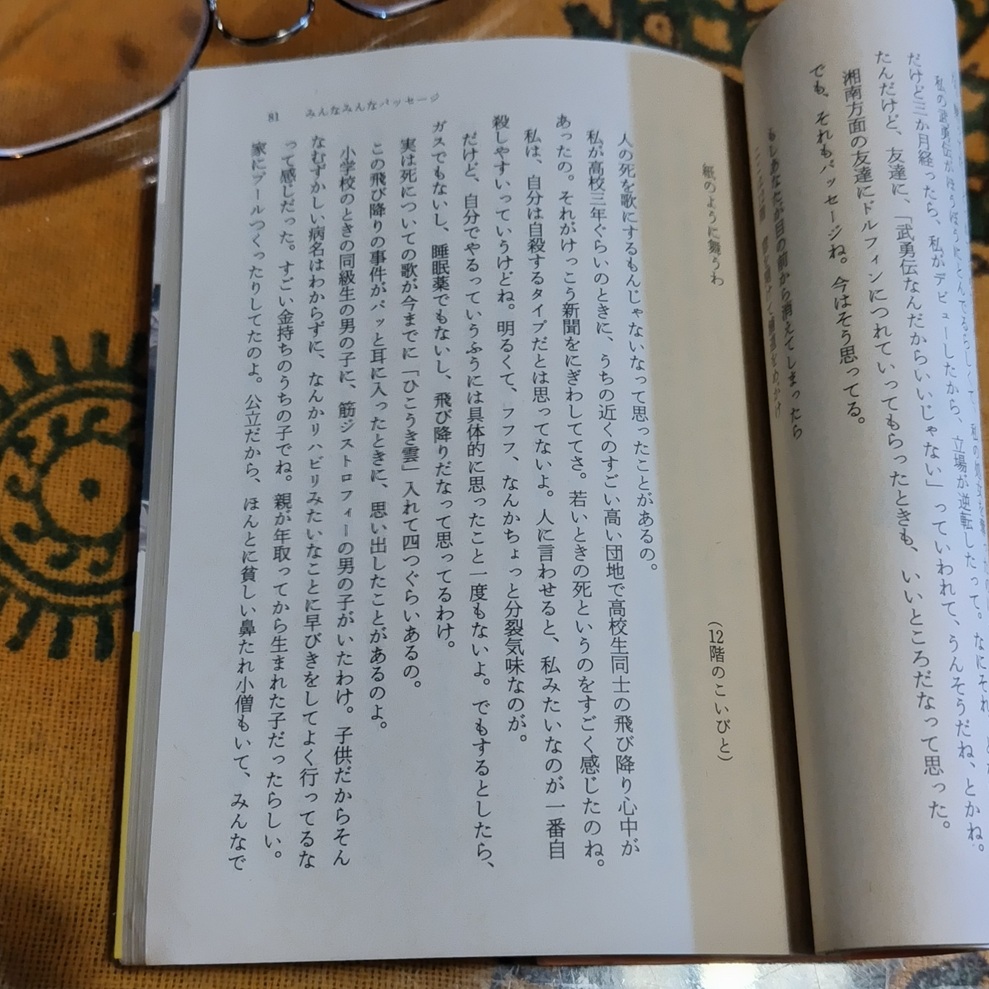 だけど三か月経ったら、私がデビューしたから、立場が逆転したって。なにそれ
たんだけど、友達に、「武勇伝なんだからいいじゃない」っていわれて、うんそうだね、とかね。
湘南方面の友達にドルフィンにつれていってもらったときも、いいところだなって思った。
でも、それもパッセージね。今はそう思ってる。
もしあなたが目の前から消えてしまったら
紙のように舞うわ
（12階のこいびと）
人の死を歌にするもんじゃないなって思ったことがあるの。
私が高校三年ぐらいのときに、うちの近くのすごい高い団地で高校生同士の飛び降り心中が
あったの。それがけっこう新聞をにぎわしててさ。若いときの死というのをすごく感じたのね。
私は、自分は自殺するタイプだとは思ってないよ。人に言わせると、私みたいなのが一番自
殺しやすいっていうけどね。明るくて、フフフ、なんかちょっと分裂気味なのが。
だけど、自分でやるっていうふうには具体的に思ったこと一度もないよ。でもするとしたら、
ガスでもないし、睡眠薬でもないし、飛び降りだなって思ってるわけ。
実は死についての歌が今までに「ひこうき雲」入れて四つぐらいあるの。
この飛び降りの事件がパッと耳に入ったときに、思い出したことがあるのよ。
小学校のときの同級生の男の子に、筋ジストロフィーの男の子がいたわけ。子供だからそん
なむずかしい病名はわからずに、なんかリハビリみたいなことに早びきをしてよく行ってるな
って感じだった。すごい金持ちのうちの子でね。親が年取ってから生まれた子だったらしい。
家にプールつくったりしてたのよ。公立だから、ほんとに貧しい鼻たれ小僧もいて、みんなで
81 みんなみんなパッセージ